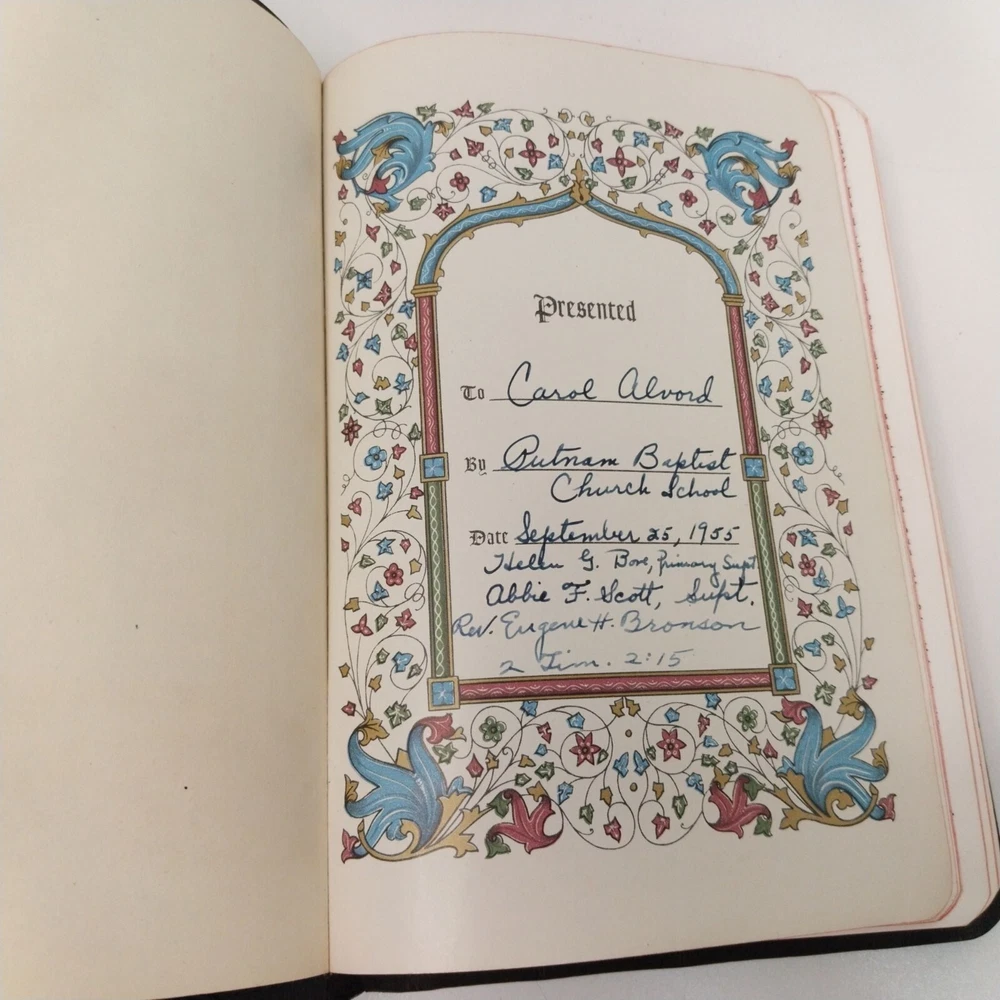 Presented
To Carol Alvord
By Putnam Baptist
Church School
Date September 25, 1955
Helen G. Bove, Primary Supt
Abbie F. Scott, Supt.
Rev. Eugene H. Bronson
2 Tim. 2:15